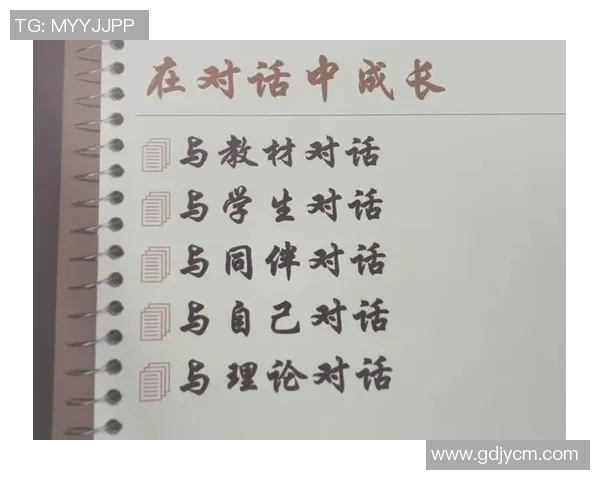 TG: MYYJJPP
在对话中成长
与教材对话
与学生对话
与同伴对话
与自己对话
与理论对话
www.gdjycm.com